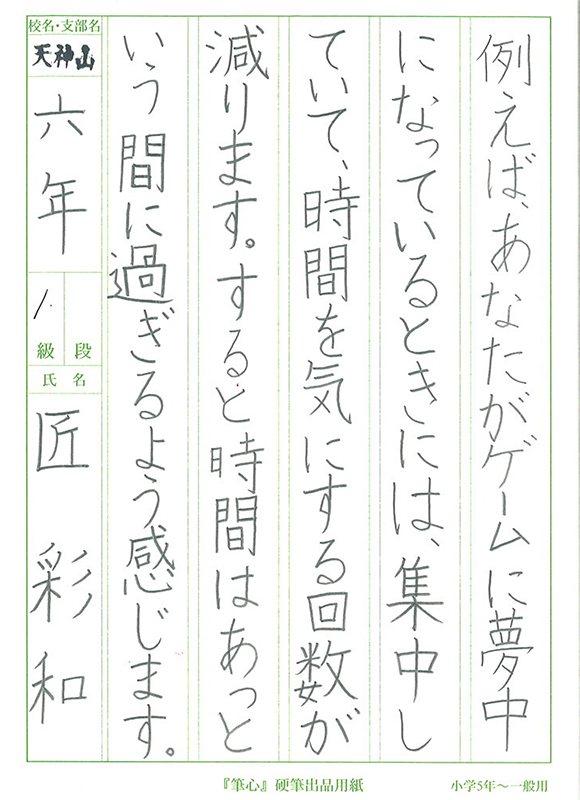 例えば、あなたがゲームに夢中
になっているときには、集中し
ていて、時間を気にする回数が
減ります。すると時間はあっと
いう間に過ぎるよう感じます。
校名・支部名
天神山
六年
1
級 段
氏名
匠 彩和
『筆心』硬筆出品用紙
小学5年〜一般用